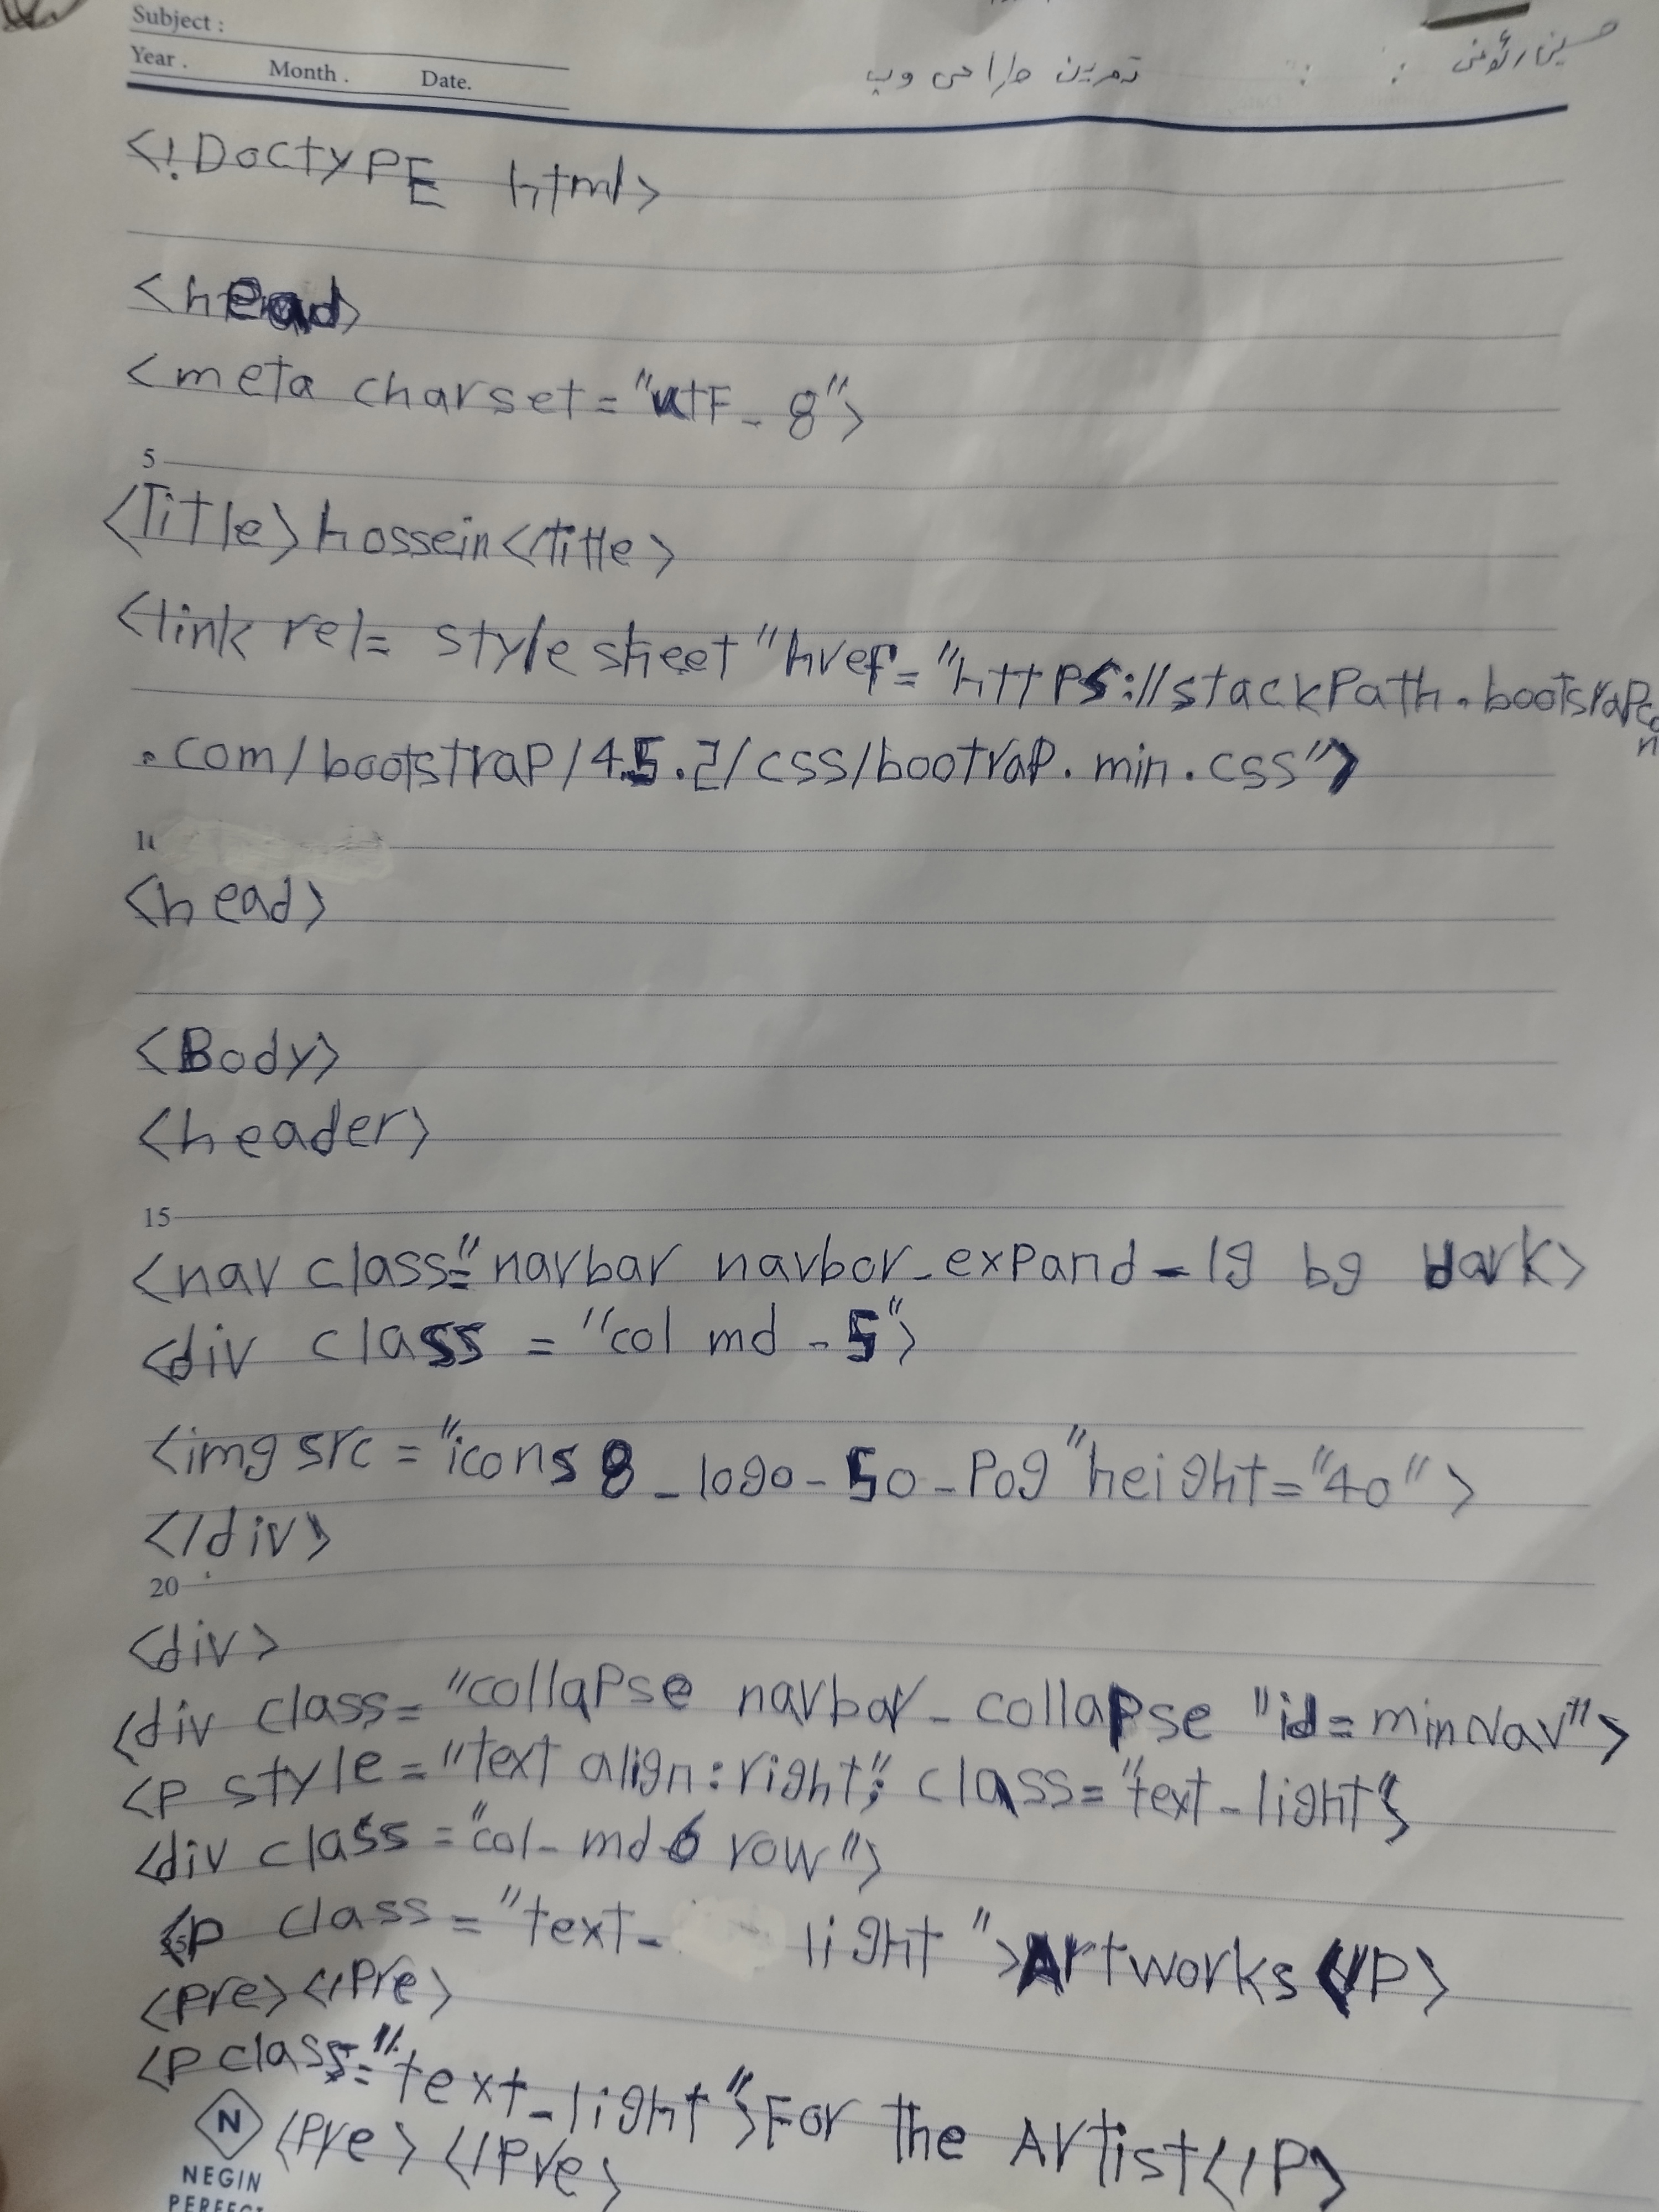 Subject :
Year . Month . Date.
تمرین طراحی وب
<!DoctyPE html>
<head>
<meta charset="utF_8">
5
<Title>hossein</Title>
<link rel= style sheet "href="https://stackPath.bootstraPcdn
.com/bootstraP/4.5.2/css/bootraP.min.css">
<head>
<Body>
<header>
15
<nav class="navbar navbar_expand-lg bg dark>
<div class = "col md -5">
<img src = "icons 8_logo-50-Pog "height="40">
</div>
20
<div>
<div class="collaPse navbar_collapse "id=minNav">
<P style="text align:right"; class="text-light">
<div class="col_md6 row">
<p class="text- light ">Artworks </P>
<Pre></Pre>
<P class="text_light">For the Artist</P>
<Pre></Pre>
N
NEGIN
PERFECT